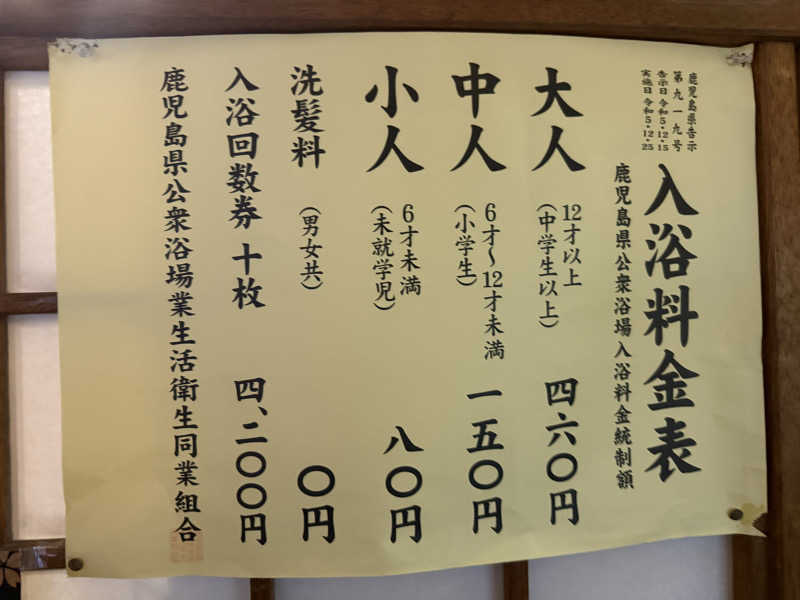 鹿児島県告示
第九一九号
告示日 令和5・12・15
実施日 令和5・12・25
入浴料金表
鹿児島県公衆浴場入浴料金統制額
大人
12才以上
(中学生以上)
四六〇円
中人
6才〜12才未満
(小学生)
一五〇円
小人
6才未満
(未就学児)
八〇円
洗髪料
(男女共)
〇円
入浴回数券 十枚
四、二〇〇円
鹿児島県公衆浴場業生活衛生同業組合